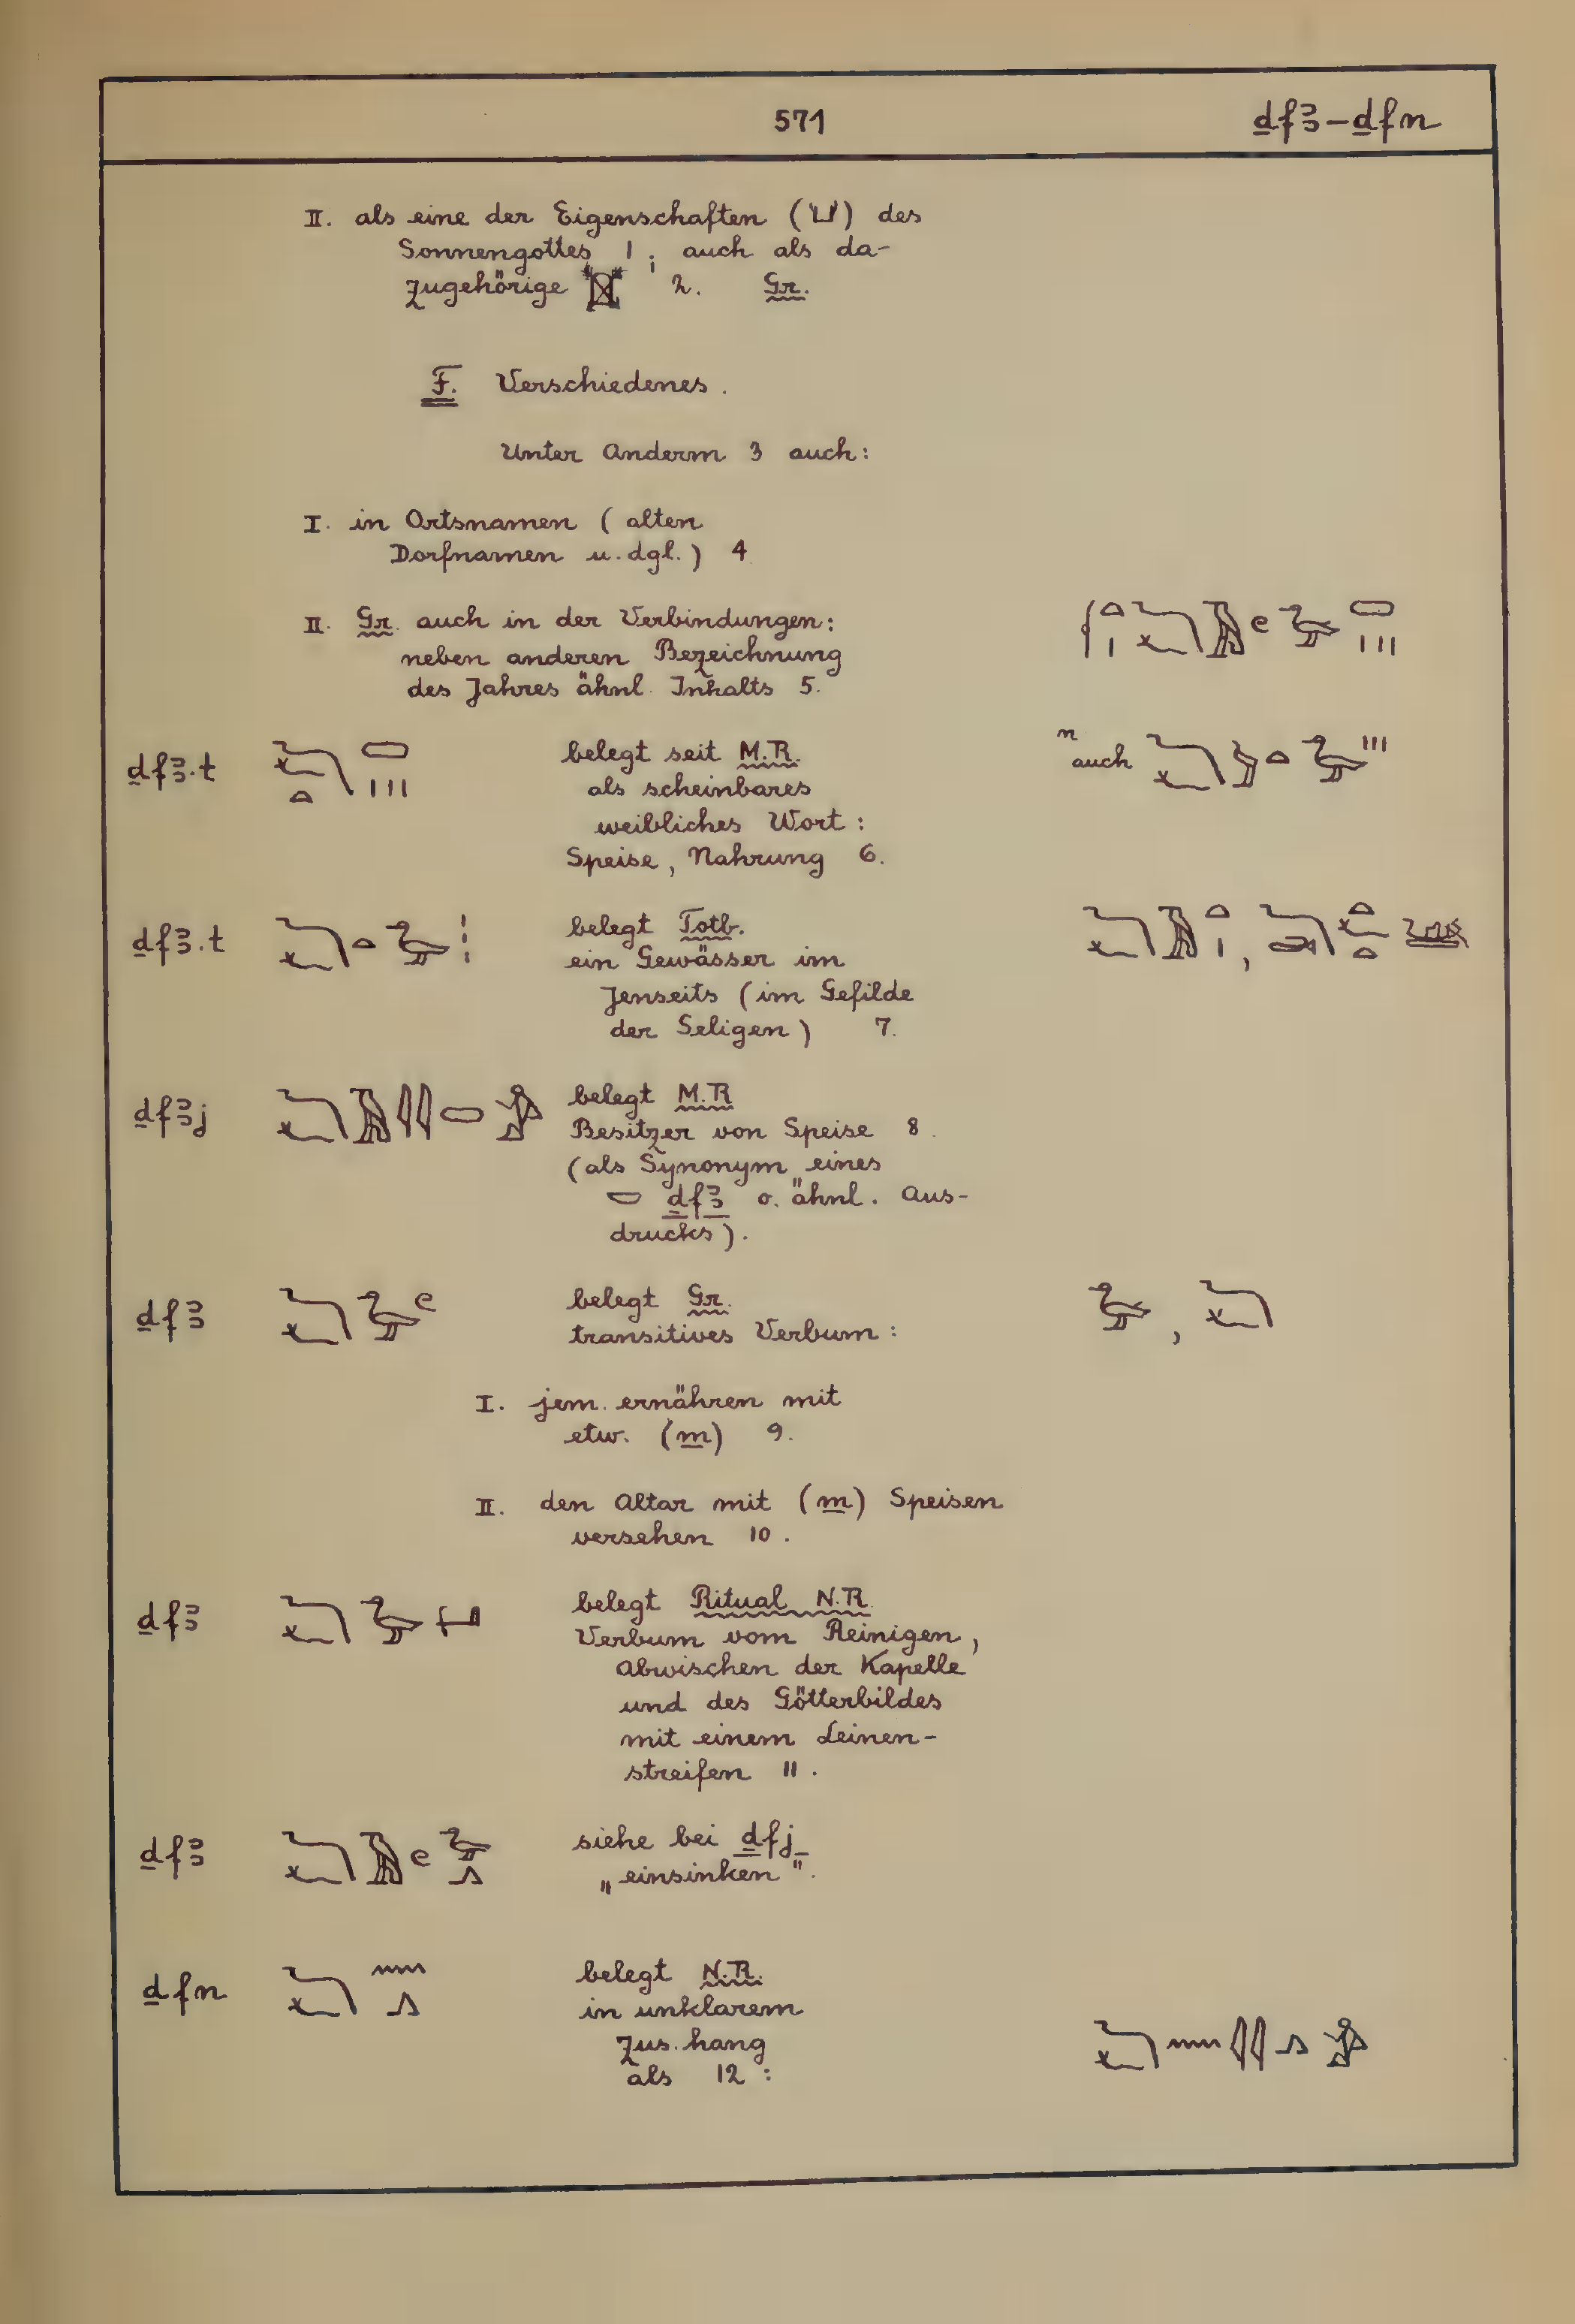 571 ḏfꜣ–ḏfn
II. als eine der Eigenschaften (𓂓) des
Sonnengottes 1; auch als da-
zugehörige 2. Gr.
F. Verschiedenes.
Unter Anderm 3 auch:
I. in Ortsnamen (alten
Dorfnamen u. dgl.) 4
II. Gr. auch in der Verbindungen:
neben anderen Bezeichnung
des Jahres ähnl. Inhalts 5.
ḏfꜣ.t belegt seit M.R. auch
als scheinbares
weibliches Wort:
Speise, Nahrung 6.
ḏfꜣ.t belegt Totb.
ein Gewässer im
Jenseits (im Gefilde
der Seligen) 7.
ḏfꜣj belegt M.R
Besitzer von Speise 8.
(als Synonym eines
𓎟 ḏfꜣ o. ähnl. Aus-
drucks).
ḏfꜣ belegt Gr.
transitives Verbum:
I. jem. ernähren mit
etw. (m) 9.
II. den Altar mit (m) Speisen
versehen 10.
ḏfꜣ belegt Ritual N.R.
Verbum vom Reinigen,
Abwischen der Kapelle
und des Götterbildes
mit einem Leinen-
streifen 11.
ḏfꜣ siehe bei ḏfj
„einsinken".
ḏfn belegt N.R.
in unklarem
Zus.hang
als 12: